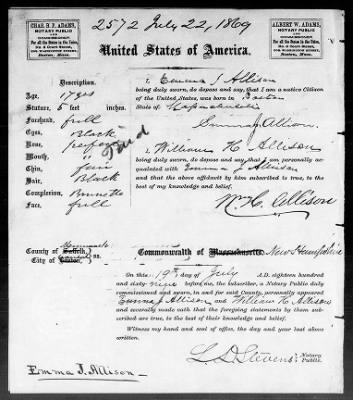 2572 July 22, 1869
CHAS. H. P. ADAMS,
NOTARY PUBLIC
AND
COMMISSIONER
For all the States in the Union,
No. 5 Court Street,
Boston, Mass.
ALBERT W. ADAMS,
NOTARY PUBLIC
AND
COMMISSIONER
For all the States in the Union,
No. 5 Court Street,
Boston, Mass.
United States of America.
Description.
Age, 17 yrs
Stature, 5 feet inches.
Forehead, full
Eyes, Black
Nose,
Mouth, "
Chin, fair
Hair, Black
Complexion, Brunette
Face, full
Paid
I, Emma J Allison
being duly sworn, do depose and say, that I am a native Citizen
of the United States, was born in Boston
State of Massachusetts
Emma J Allison.
I, William H Allison
being duly sworn, do depose and say, that I am personally acquainted
with Emma J Allison
and that the above affidavit by him subscribed to true, to the
best of my knowledge and belief.
Wm H. Allison
County of Suffolk,
City of Boston, ss.
Commonwealth of Massachusetts, New Hampshire
On this 19th day of July A.D. eighteen hundred
and sixty nine before me, the subscriber, a Notary Public duly
commissioned and sworn, in and for said County, personally appeared
Emma J Allison and William H Allison
and severally made oath that the foregoing statements by them subscribed
are true, to the best of their knowledge and belief.
Witness my hand and seal of office, the day and year last above
written.
L. D. Stevens Notary
Public.
Emma J. Allison